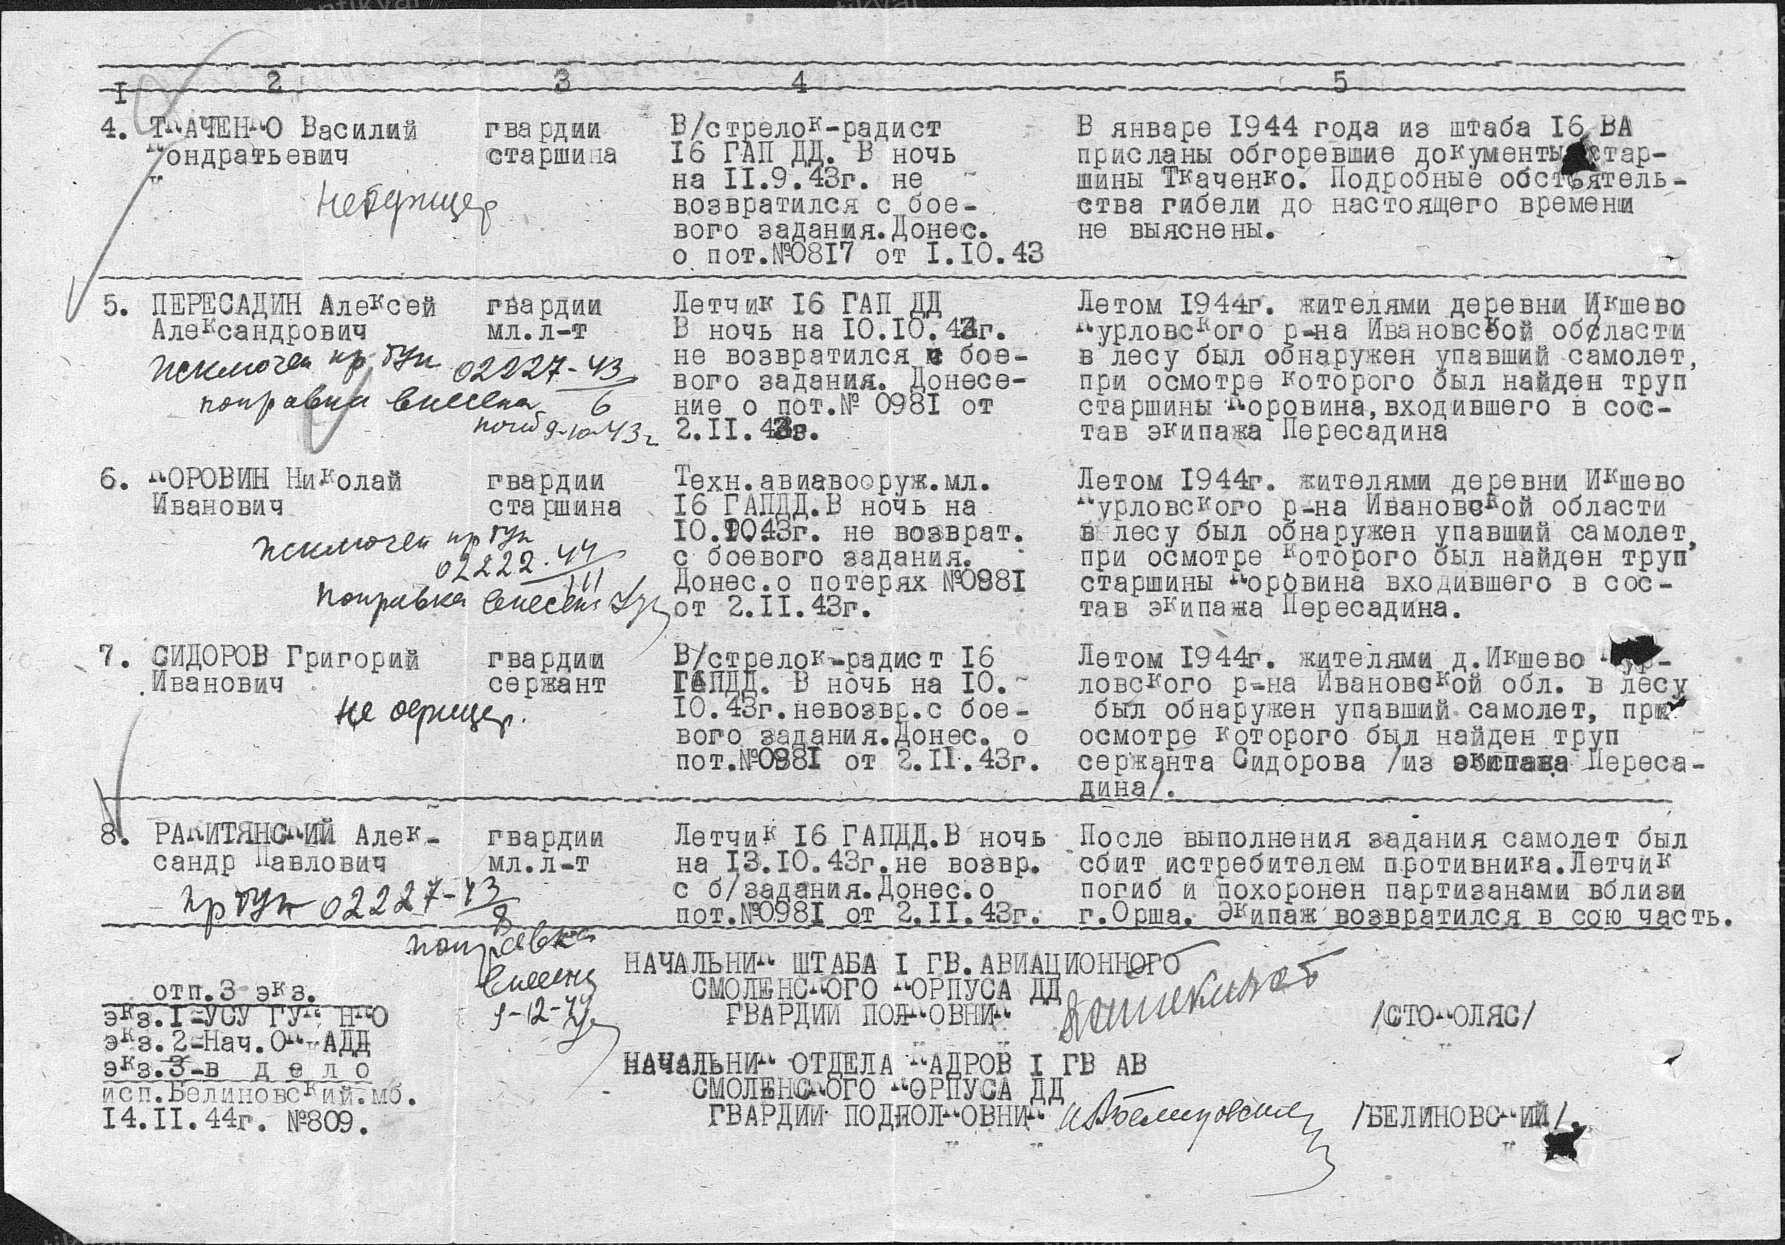 1 2 3 4 5
4. ТКАЧЕНКО Василий гвардии В/стрелок-радист В январе 1944 года из штаба 16 ВА
Кондратьевич старшина 16 ГАП ДД. В ночь присланы обгоревшие документы стар-
на II.9.43г. не шины Ткаченко. Подробные обстоятель-
Не офицер возвратился с бое- ства гибели до настоящего времени
вого задания.Донес. не выяснены.
о пот.№0817 от I.IO.43
5. ПЕРЕСАДИН Алексей гвардии Летчик 16 ГАП ДД Летом 1944г. жителями деревни Икшево
Александрович мл.л-т В ночь на 10.10.43г. Курловского р-на Ивановской области
Исключен пр. ГУК 02227-43 не возвратился с бое- в лесу был обнаружен упавший самолет,
вого задания. Донесе- при осмотре которого был найден труп
поправка внесена 6 ние о пот.№ 0981 от старшины Коровина,входившего в сос-
погиб 9-10-43г 2.II.43г. тав экипажа Пересадина
6. КОРОВИН Николай гвардии Техн.авиавооруж.мл. Летом 1944г. жителями деревни Икшево
Иванович старшина 16 ГАПДД.В ночь на Курловского р-на Ивановской области
Исключен пр ГУК 10.1043г. не возврат. в лесу был обнаружен упавший самолет,
02222-44 с боевого задания. при осмотре которого был найден труп
III Донес.о потерях №0981 старшины Коровина входившего в сос-
Поправка внесена от 2.II.43г. тав экипажа Пересадина.
7. СИДОРОВ Григорий гвардии В/стрелок-радист 16 Летом 1944г. жителями д.Икшево Кур-
Иванович сержант ГАПДД. В ночь на 10. ловского р-на Ивановской обл. в лесу
Не офицер. 10.43г.невозвр.с бое- был обнаружен упавший самолет, при
вого задания.Донес. о осмотре которого был найден труп
пот.№0981 от 2.II.43г. сержанта Сидорова /из экипажа Переса-
дина/.
8. РАКИТЯНСКИЙ Алек- гвардии Летчик 16 ГАПДД.В ночь После выполнения задания самолет был
сандр Павлович мл.л-т на 13.10.43г.не возвр. сбит истребителем противника.Летчик
пр ГУК 02227-43 с б/задания.Донес.о погиб и похоронен партизанами вблизи
8 пот.№0981 от 2.II.43г. г.Орша. Экипаж возвратился в сою часть.
поправка
внесена
9-12-44г
НАЧАЛЬНИК ШТАБА I ГВ.АВИАЦИОННОГО
СМОЛЕНСКОГО КОРПУСА ДД
ГВАРДИИ ПОЛКОВНИК /СТОКОЛЯС/
отп.3 экз.
экз.I-УСУ ГУК НКО
экз.2-Нач.ОК АДД
экз.3-в дело
исп.Белиновский.мб.
14.II.44г. №809.
НАЧАЛЬНИК ОТДЕЛА КАДРОВ I ГВ АВ
СМОЛЕНСКОГО КОРПУСА ДД
ГВАРДИИ ПОДПОЛКОВНИК /БЕЛИНОВСКИЙ/.